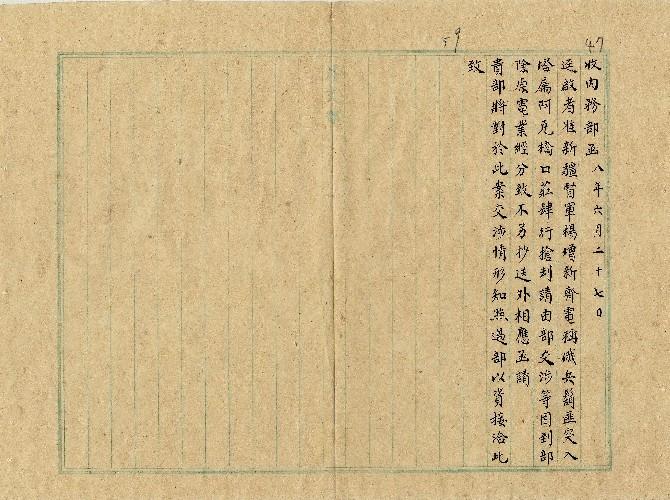 47
59
收內務部函 八年六月二十七日
逕啟者准新疆督軍楊增新齊電稱俄兵鬍匪突入
塔屬阿克橋口莊肆行搶刦請由部交涉等因到部
除原電業經分致不另抄送外相應函請
貴部將對於此案交涉情形知照過部以資接洽此
致